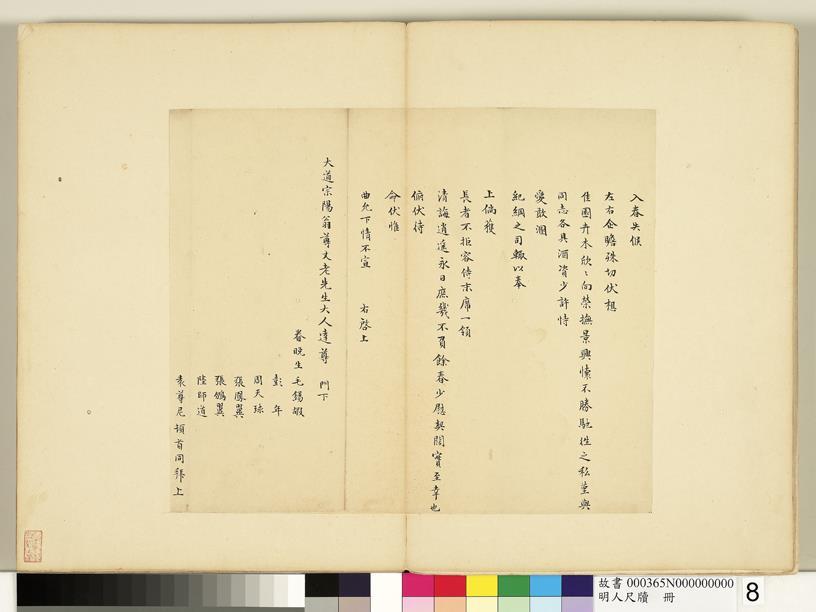 入春失候
左右企瞻殊切伏想
佳園卉木欣〻向榮撫景興懷不勝馳性之私茔與
同志各具酒資少許恃
愛敢溷
紀綱之司輒以奉
上倘獲
長者不拒容侍末席一領
清誨逍遙永日庶幾不負餘春少慰契闊實至幸也
俯伏待
命伏惟
曲允下情不宣 右啓上
大道宗陽翁尊丈老先生大人達尊 門下
眷晚生毛錫嘏
彭年
周天球
張鳳翼
張鵷翼
陸師道
袁尊尼 頓首同拜上
故書 000365N000000000
明人尺牘 冊
8